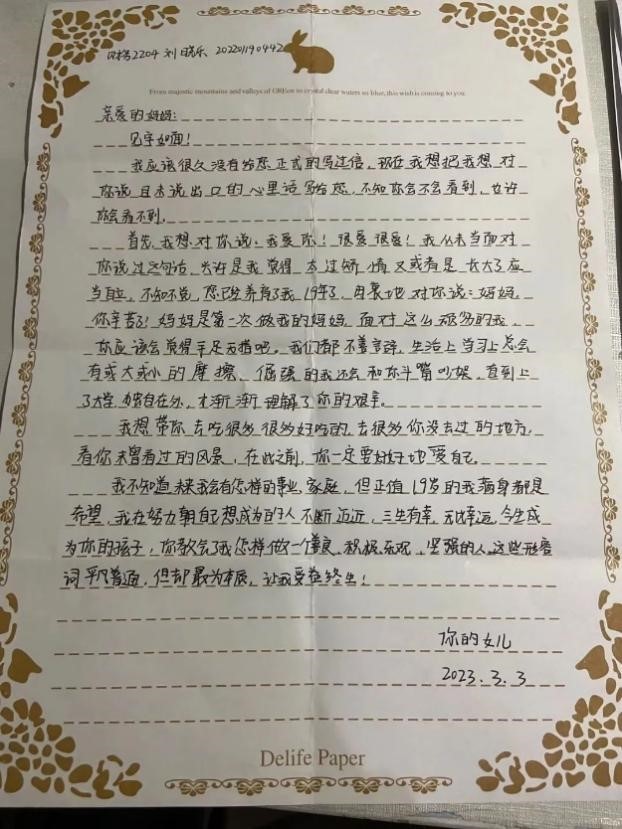 2204 刘晓乐 202201190442
From majestic mountains and valleys of GREen to crystal clear waters so blue, this wish is coming to you
亲爱的妈妈:
见字如面!
我应该很久没有给您正式的写过信,现在我想把我想对
你说且未说出口的心里话写给您,不知你会不会看到,也许
你会看不到。
首先,我想对你说:我爱你!很爱很爱!我从未当面对
你说过这句话,也许是我觉得太过矫情又或者是长大了应
当自立,不知不觉,您已经养育了我19年了,由衷地对你说:妈妈,
你辛苦了!妈妈是第一次做我的妈妈,面对这么的我,
你应该会觉得手足无措吧。我们都不善言辞,生活上学习上总会
有或大或小的摩擦,倔强的我还会和你斗嘴吵架,直到上
了大学,独自在外,才渐渐理解了你的艰辛。
我想带你去吃很多很多好吃的,去很多你没去过的地方,
看你未曾看过的风景,在此之前,你一定要好好地爱自己。
我不知道未来我会有怎样的事业、家庭,但正值19岁的我满身都是
希望,我在努力朝自己想成为的人不断迈近,三生有幸,无比幸运,今生成
为你的孩子,你教会了我怎样做一个善良、积极乐观、坚强的人,这些形容
词平凡普通,但却最为本质,让我受益终生!
你的女儿
2023.3.3
Delife Paper